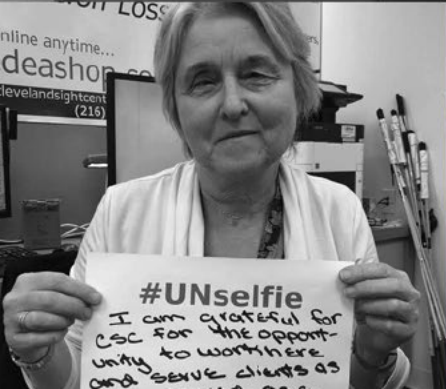 on Loss
nline anytime...
deashop.co
levelandsightcent
(216)
#UNselfie
I am grateful for
CSC for the opport-
unity to work here
and serve clients as